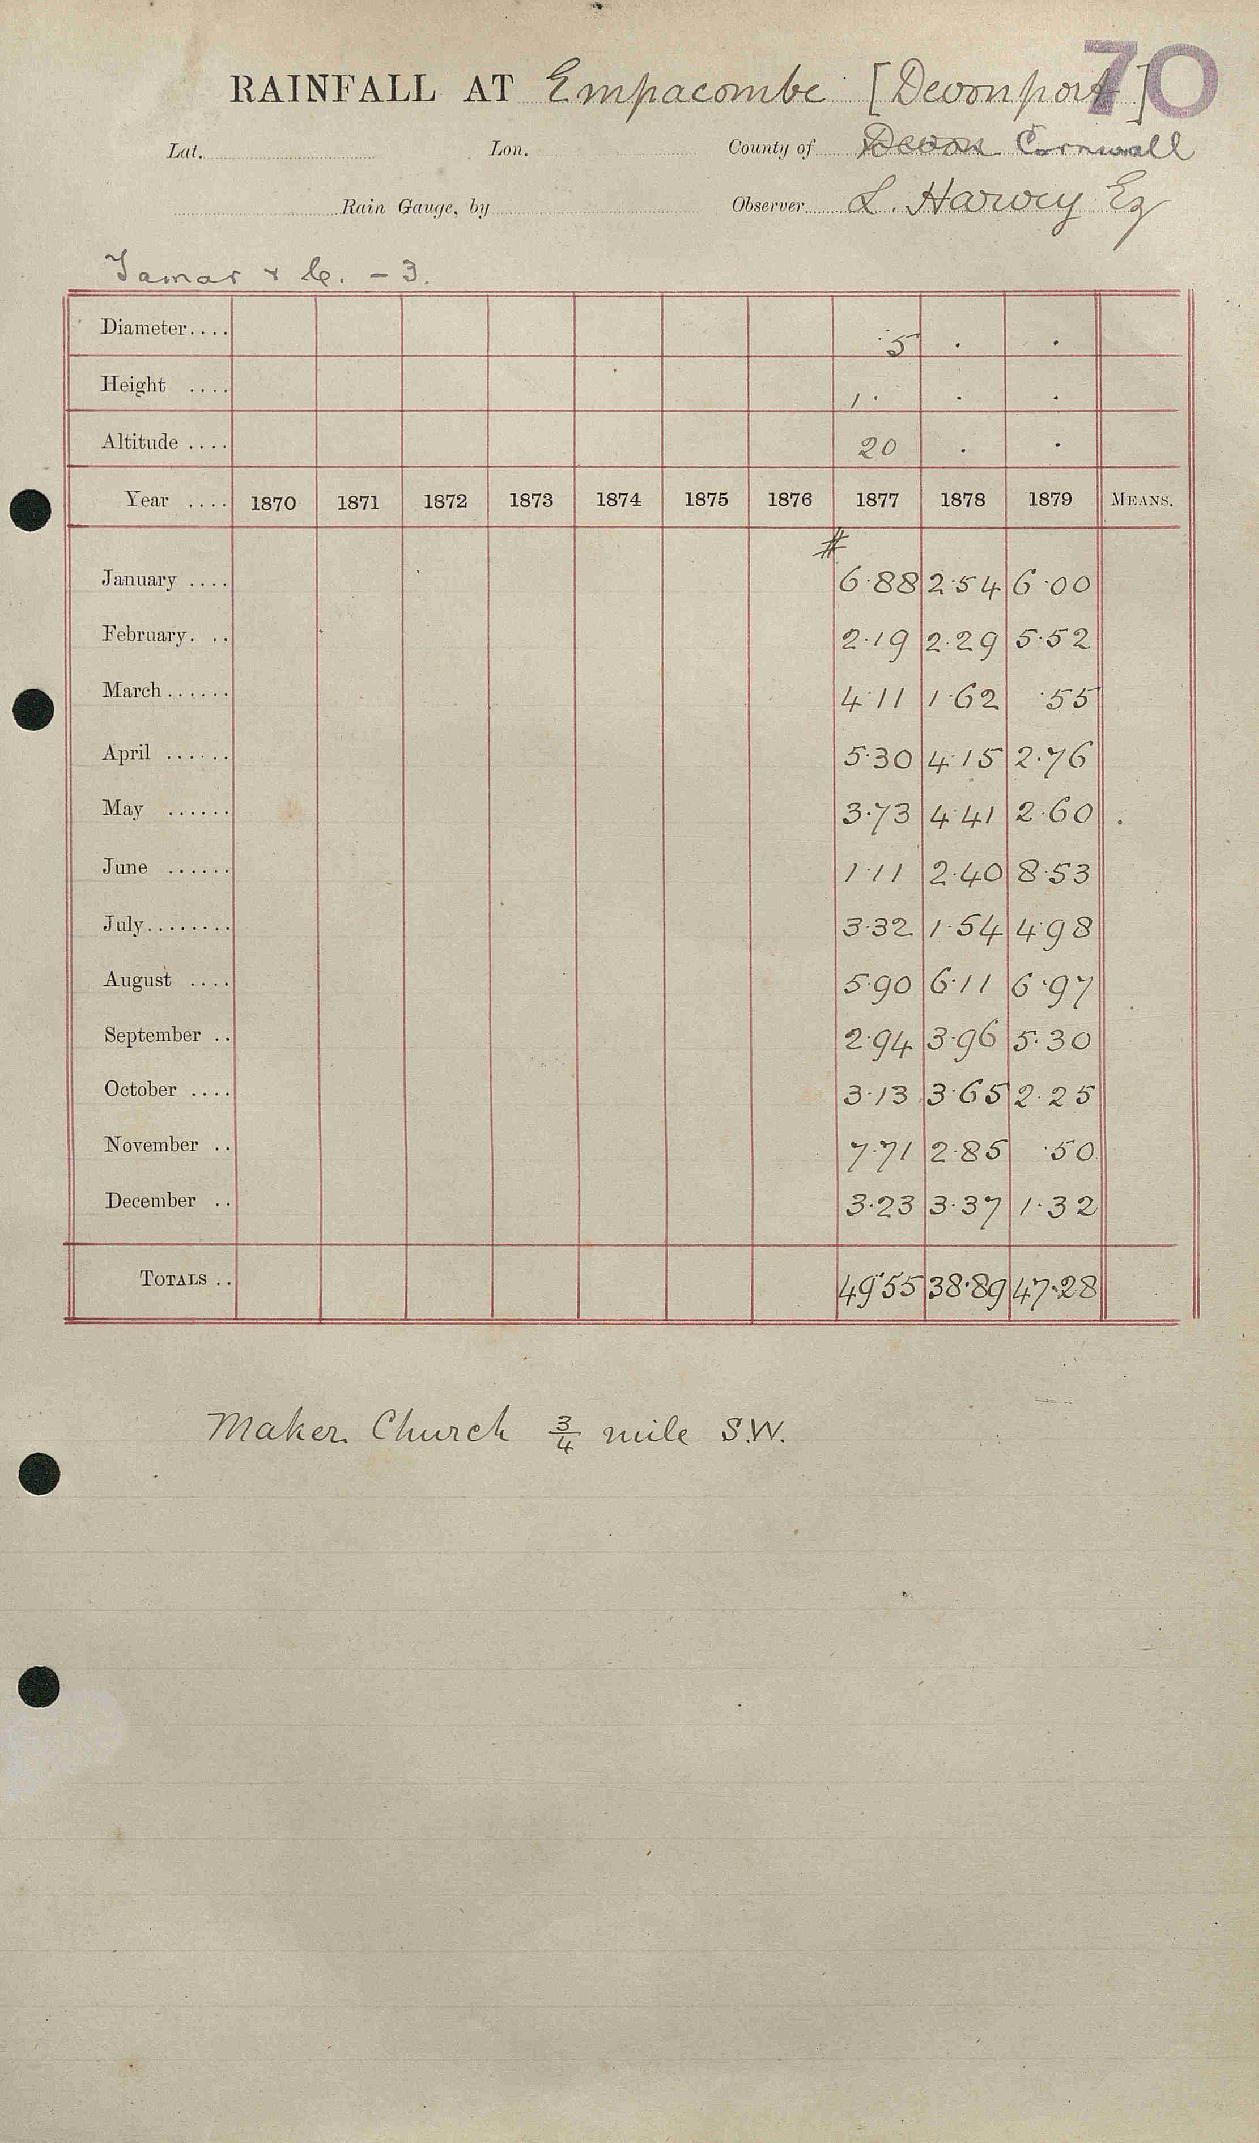 70
RAINFALL AT Empacombe [Devonport]
Lat. Lon. County of Devon Cornwall
Rain Gauge, by Observer L. Harvey Eq
Tamar & C. - 3.
Diameter.... 5 . .
Height .... 1. . .
Altitude .... 20 . .
Year .... 1870 1871 1872 1873 1874 1875 1876 1877 1878 1879 MEANS.
#
January .... 6.88 2.54 6.00
February. .. 2.19 2.29 5.52
March...... 4.11 1.62 .55
April ...... 5.30 4.15 2.76
May ...... 3.73 4.41 2.60
June ...... 1.11 2.40 8.53
July........ 3.32 1.54 4.98
August .... 5.90 6.11 6.97
September .. 2.94 3.96 5.30
October .... 3.13 3.65 2.25
November .. 7.71 2.85 .50
December .. 3.23 3.37 1.32
TOTALS .. 49.55 38.89 47.28
Maker Church 3/4 mile S.W.